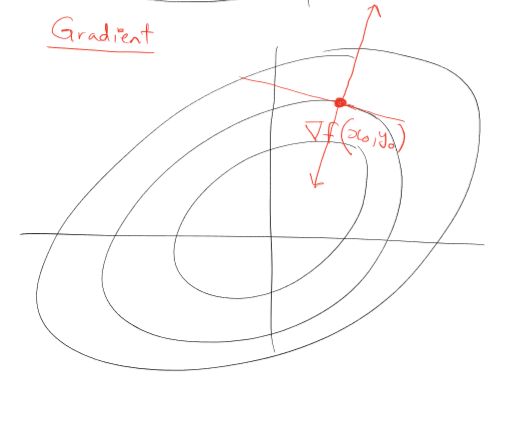 Gradient
∇f(x₀,y₀)